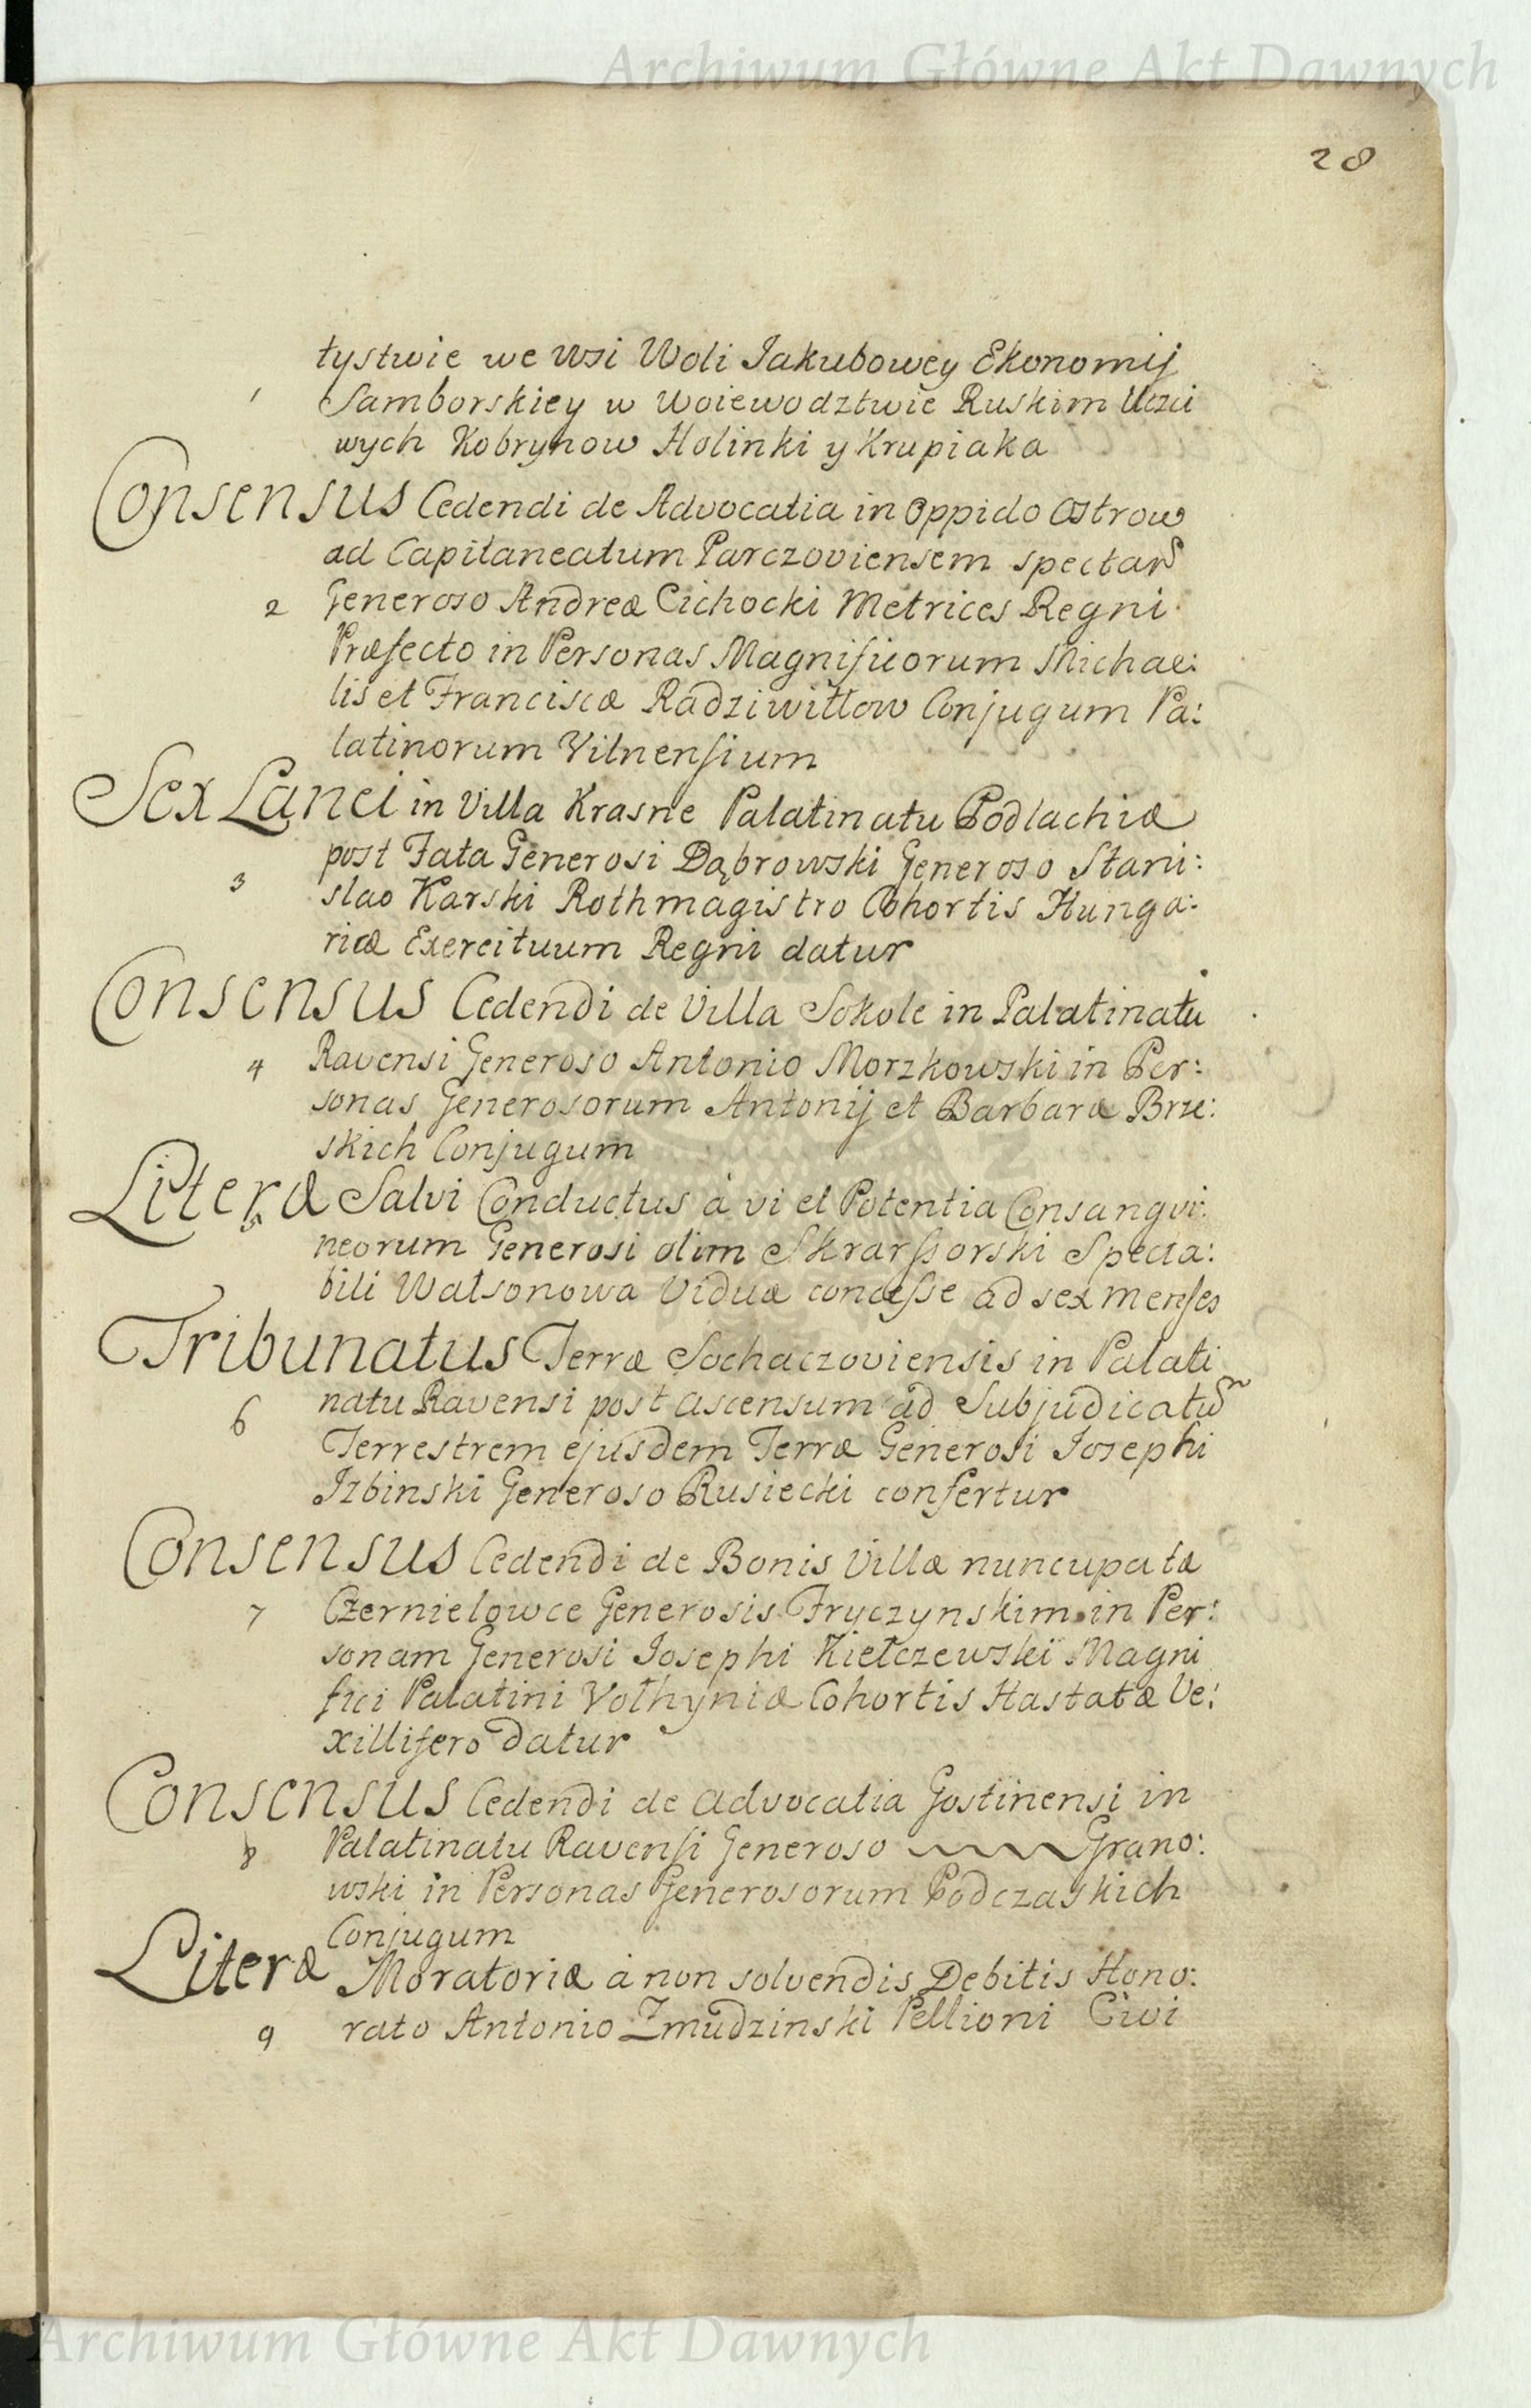 Archiwum Główne Akt Dawnych
28
łystwie we Wsi Woli Jakubowey Ekonomij
1 Samborskiey w Woiewodztwie Ruskim Uczci
wych Kobrynow Holinki y Krupiaka
Consensus Cedendi de Advocatia in Oppido Ostrow
ad Capitaneatum Parczoviensem spectan
2 Generoso Andreæ Cichocki Metrices Regni
Præfecto in Personas Magnificorum Michae:
lis et Franciscæ Radziwiłłow Conjugum Pa:
latinorum Vilnensium
Sex Lanei in Villa Krasne Palatinatu Podlachiæ
post Fata Generosi Dąbrowski Generoso Stani:
3 slao Karski Rothmagistro Cohortis Hunga:
ricæ Exercituum Regni datur
Consensus Cedendi de Villa Sokole in Palatinatu
4 Ravensi Generoso Antonio Morzkowski in Per:
sonas Generosorum Antonij et Barbaræ Brze:
skich Conjugum
Literæ Salvi Conductus à vi et Potentia Consangvi:
5 neorum Generosi olim Specta:
bili Watsonowa Viduæ concessæ ad sex menses
Tribunatus Terræ Sochaczoviensis in Palati
6 natu Ravensi post ascensum ad Subjudicatu
Terrestrem ejusdem Terræ Generosi Josephi
Izbinski Generoso Rusiecki confertur
Consensus Cedendi de Bonis Villæ nuncupatæ
7 Czernielowce Generosis Fryczynskim in Per:
sonam Generosi Josephi Kiełczewski Magni
fici Palatini Vołhyniæ Cohortis Hastatæ Ve:
xillifero datur
Consensus Cedendi de advocatia Gostinensi in
8 Palatinatu Ravensi Generoso Grano:
wski in Personas Generosorum Podczaskich
Conjugum
Literæ Moratoriæ à non solvendis Debitis Hono:
9 rato Antonio Zmudzinski Pellioni Civi
Archiwum Główne Akt Dawnych